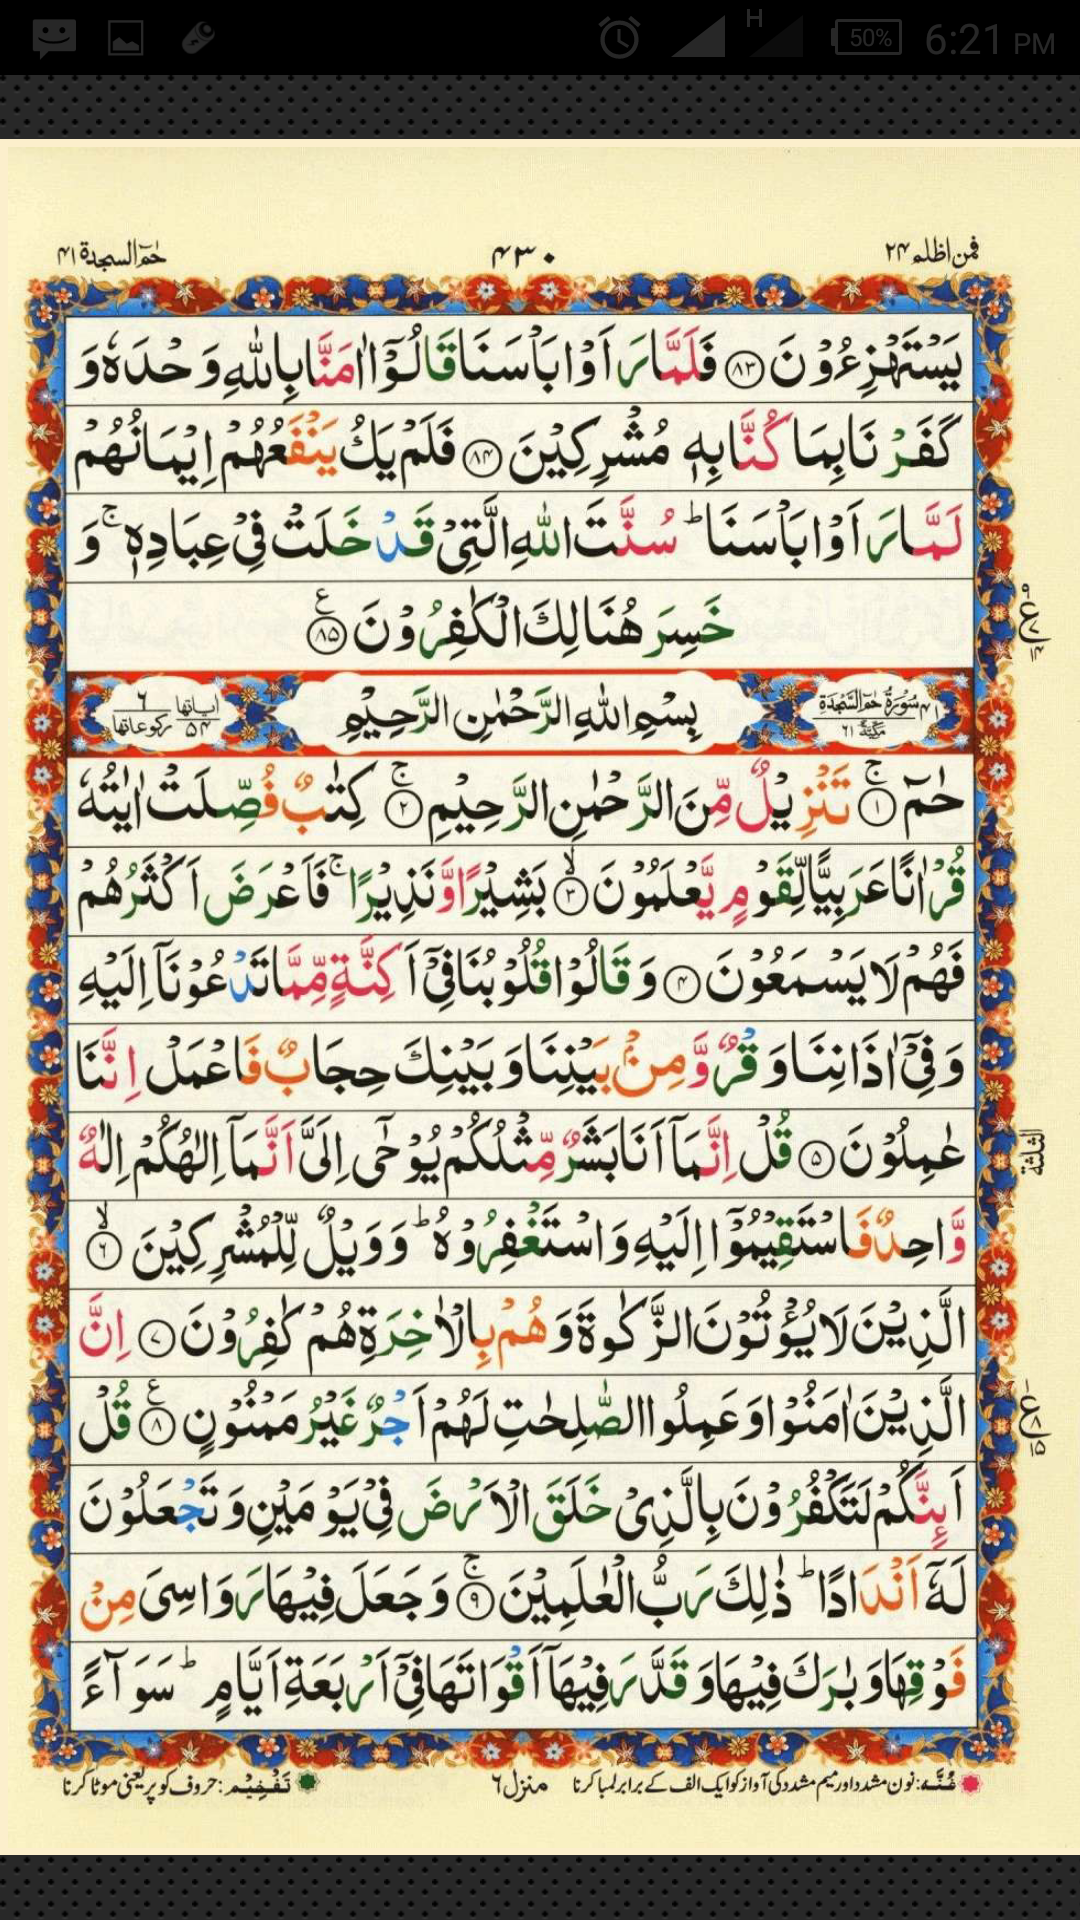 50% 6:21 PM
H
فمن اظلم ۲۴
۴۳۰
حٰمٓ السجدة ۴۱
يَسْتَهْزِءُوْنَ ۝۸۳ فَلَمَّا رَاَوْا بَاْسَنَا قَالُوْٓا اٰمَنَّا بِاللّٰهِ وَحْدَهٗ وَ
كَفَرْنَا بِمَا كُنَّا بِهٖ مُشْرِكِيْنَ ۝۸۴ فَلَمْ يَكُ يَنْفَعُهُمْ اِيْمَانُهُمْ
لَمَّا رَاَوْا بَاْسَنَا ؕ سُنَّتَ اللّٰهِ الَّتِيْ قَدْ خَلَتْ فِيْ عِبَادِهٖ ۚ وَ
خَسِرَ هُنَالِكَ الْكٰفِرُوْنَ ۝۸۵
۴۱ سُوْرَةُ حٰمٓ السَّجْدَةِ مَكِّيَّةٌ ۶۱
بِسْمِ اللّٰهِ الرَّحْمٰنِ الرَّحِيْمِ
اٰياتها ۵۴ ركوعاتها ۶
حٰمٓ ۝۱ۚ تَنْزِيْلٌ مِّنَ الرَّحْمٰنِ الرَّحِيْمِ ۝۲ۚ كِتٰبٌ فُصِّلَتْ اٰيٰتُهٗ
قُرْاٰنًا عَرَبِيًّا لِّقَوْمٍ يَّعْلَمُوْنَ ۝۳ۙ بَشِيْرًا وَّنَذِيْرًا ۚ فَاَعْرَضَ اَكْثَرُهُمْ
فَهُمْ لَا يَسْمَعُوْنَ ۝۴ وَقَالُوْا قُلُوْبُنَا فِيْٓ اَكِنَّةٍ مِّمَّا تَدْعُوْنَآ اِلَيْهِ
وَفِيْٓ اٰذَانِنَا وَقْرٌ وَّمِنْۢ بَيْنِنَا وَبَيْنِكَ حِجَابٌ فَاعْمَلْ اِنَّنَا
عٰمِلُوْنَ ۝۵ قُلْ اِنَّمَآ اَنَا بَشَرٌ مِّثْلُكُمْ يُوْحٰٓى اِلَيَّ اَنَّمَآ اِلٰهُكُمْ اِلٰهٌ
وَّاحِدٌ فَاسْتَقِيْمُوْٓا اِلَيْهِ وَاسْتَغْفِرُوْهُ ؕ وَوَيْلٌ لِّلْمُشْرِكِيْنَ ۝۶ۙ
الَّذِيْنَ لَا يُؤْتُوْنَ الزَّكٰوةَ وَهُمْ بِالْاٰخِرَةِ هُمْ كٰفِرُوْنَ ۝۷ اِنَّ
الَّذِيْنَ اٰمَنُوْا وَعَمِلُوا الصّٰلِحٰتِ لَهُمْ اَجْرٌ غَيْرُ مَمْنُوْنٍ ۝۸ قُلْ
اَئِنَّكُمْ لَتَكْفُرُوْنَ بِالَّذِيْ خَلَقَ الْاَرْضَ فِيْ يَوْمَيْنِ وَتَجْعَلُوْنَ
لَهٗٓ اَنْدَادًا ؕ ذٰلِكَ رَبُّ الْعٰلَمِيْنَ ۝۹ۚ وَجَعَلَ فِيْهَا رَوَاسِيَ مِنْ
فَوْقِهَا وَبٰرَكَ فِيْهَا وَقَدَّرَ فِيْهَآ اَقْوَاتَهَا فِيْٓ اَرْبَعَةِ اَيَّامٍ ؕ سَوَآءً
الثلثة
غُنَّہ: نون مشدد اور میم مشدد کی آواز کو ایک الف کے برابر لمبا کرنا
منزل ۶
تَفْخِیْم: حروف کو پر یعنی موٹا کرنا